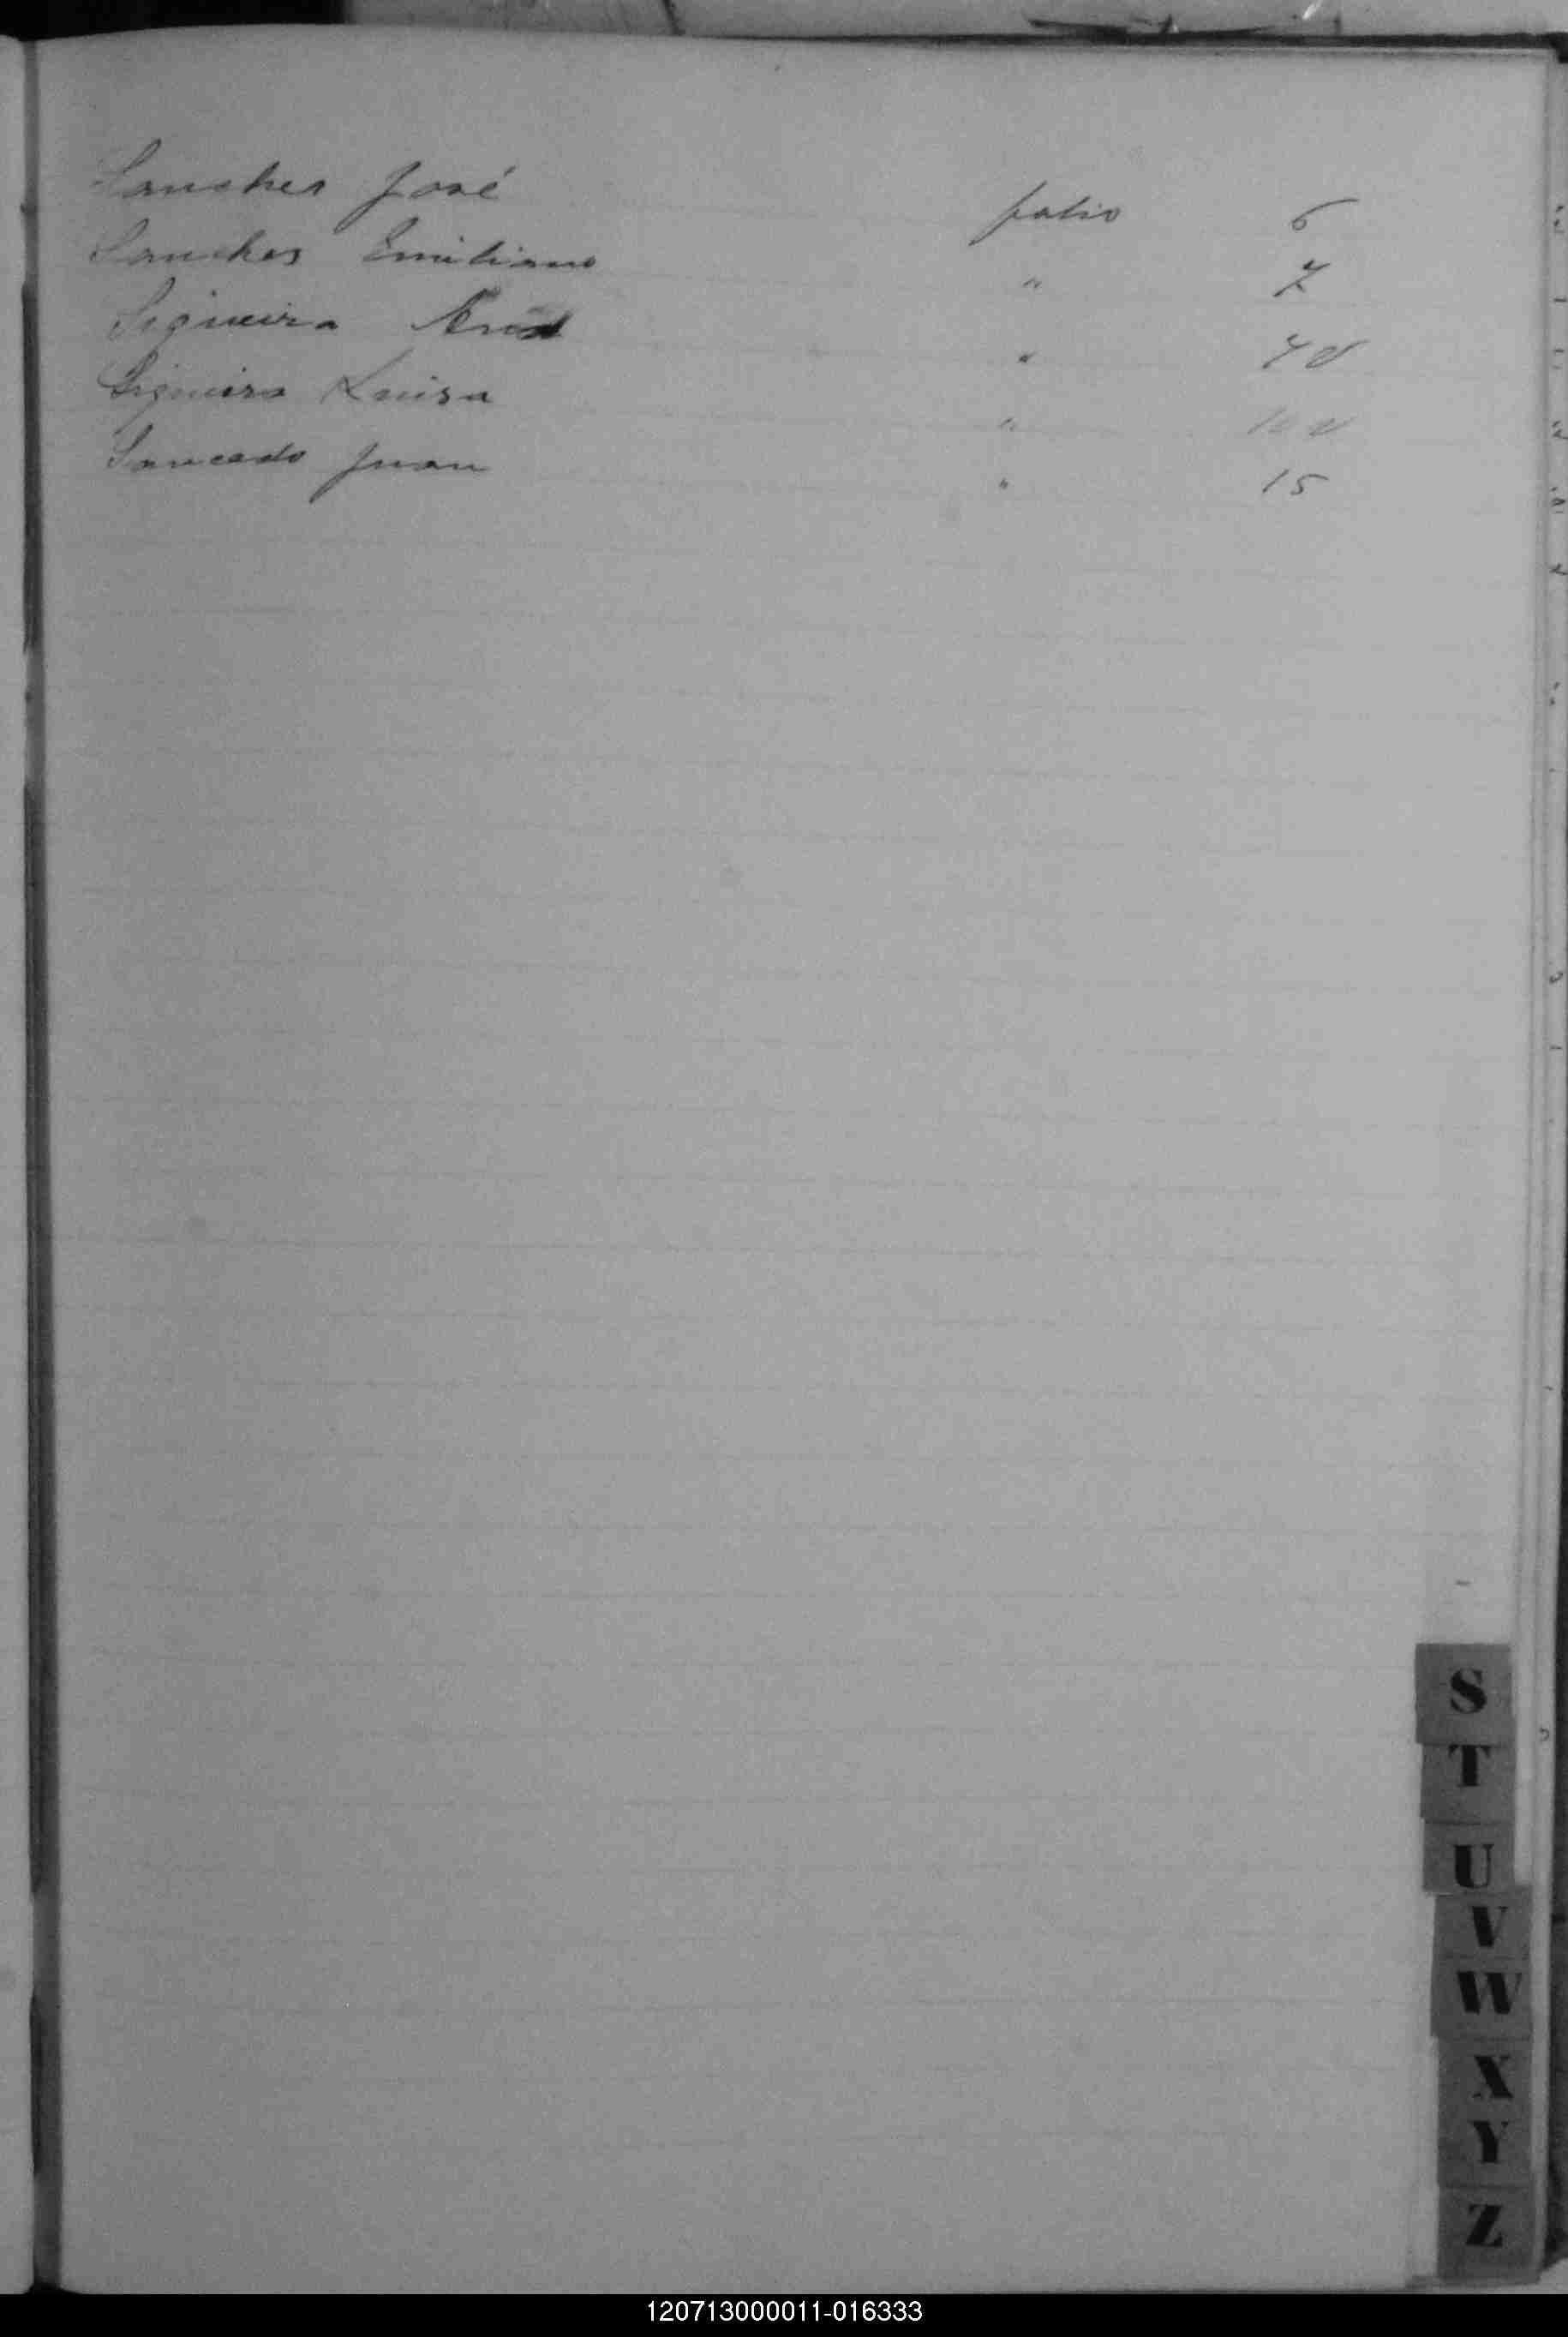 Sanches José folio 6
Sanches Emiliano " 7
Siqueira " 7 v
Siqueira Luisa " 10 v
Saucedo Juan " 15
S
T
U
V
W
X
Y
Z
120713000011-016333